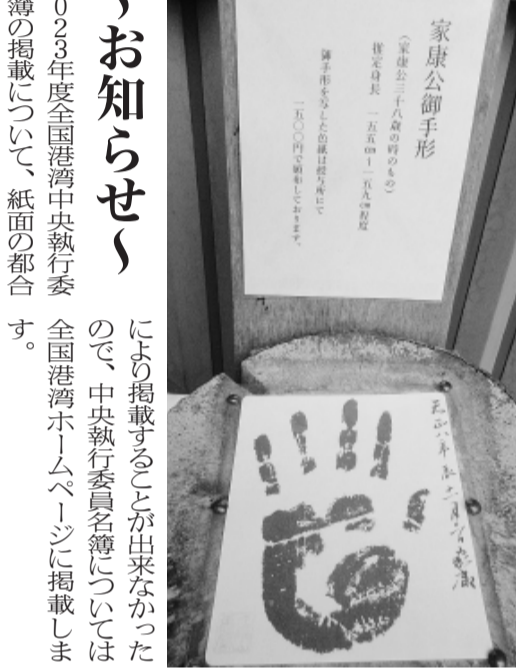 家康公御手形
(家康公三十八歳の時のもの)
推定身長 一五五㎝~一五九㎝程度
御手形を写した色紙は授与所にて
一五〇〇円で頒布しております。
~お知らせ~
023年度全国港湾中央執行委
簿の掲載について、紙面の都合
により掲載することが出来なかった
ので、中央執行委員名簿については
全国港湾ホームページに掲載しま
す。